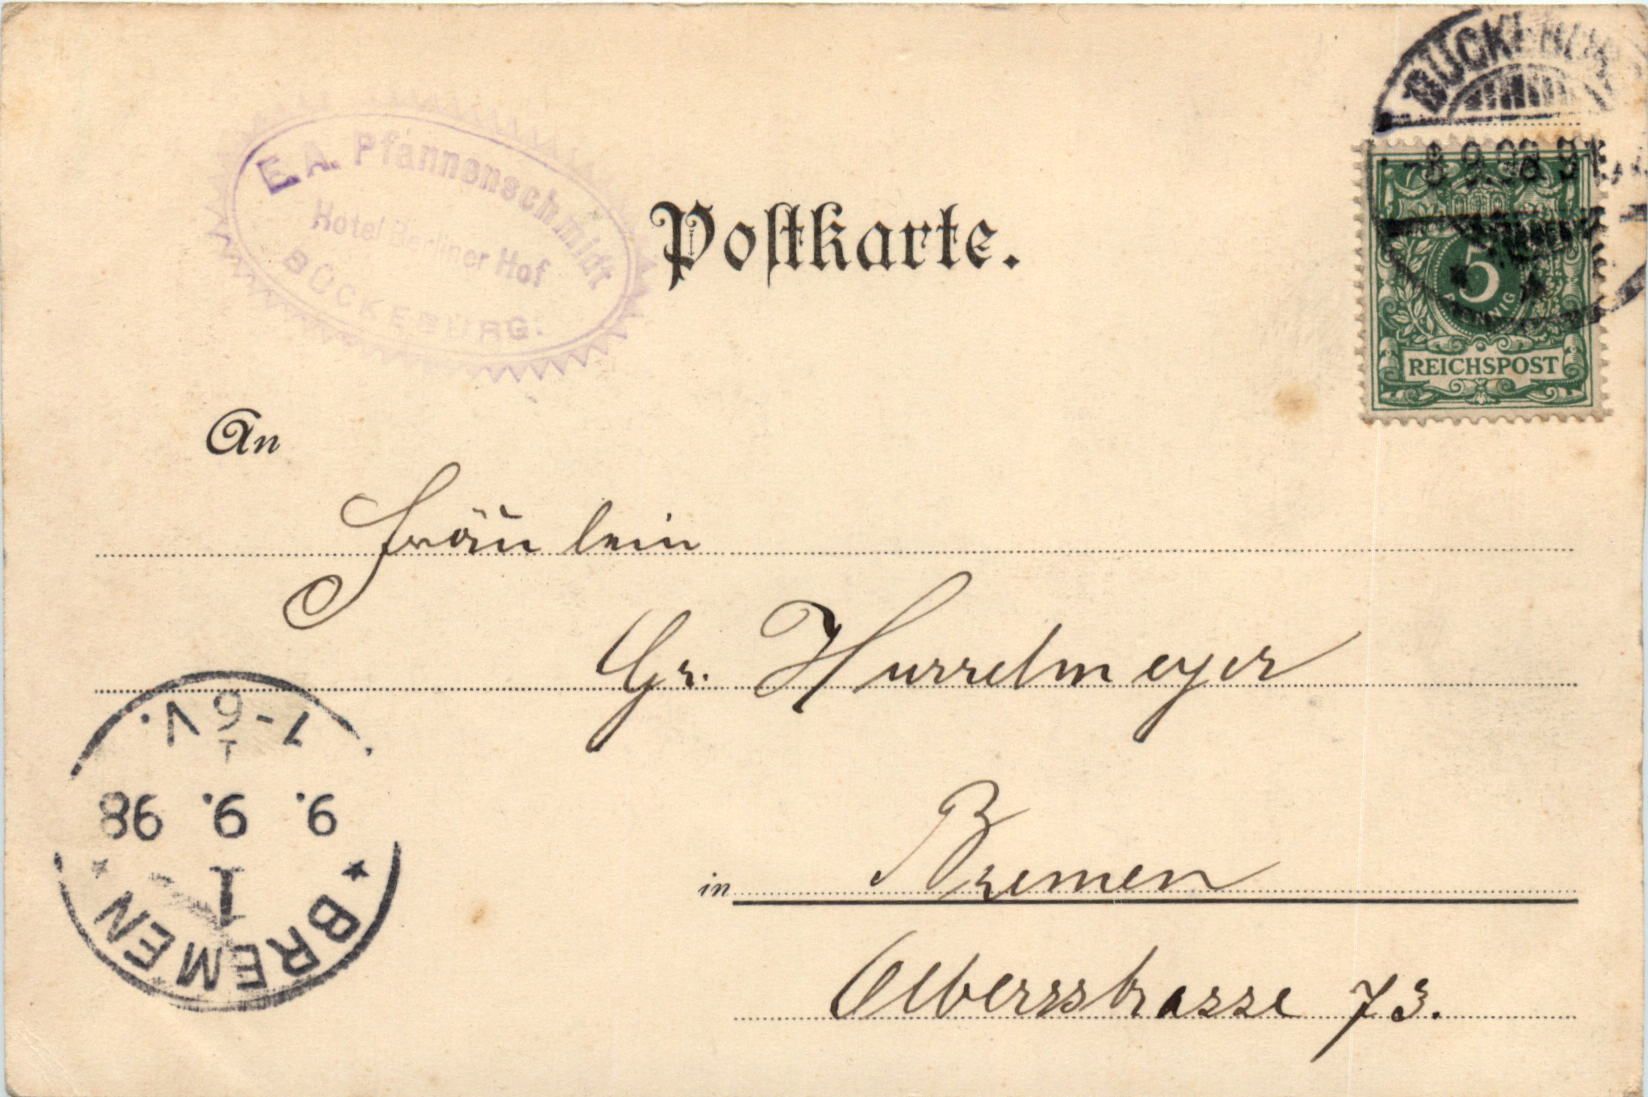 E.A. Pfannenschmidt
Hotel Berliner Hof
BÜCKEBURG.
Postkarte.
BÜCKEBURG
8 9.98
5
PFENNIG
REICHSPOST
An
Fräulein
Gr. Hurrelmeyer
in Bremen
Olbersstrasse 73.
* BREMEN *
1
9. 9. 98
1-6V.